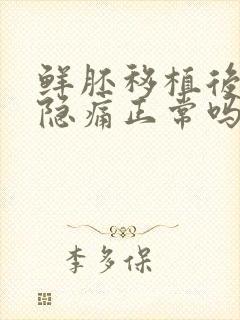 鲜胚移植後
隐痛正常吗
李多保